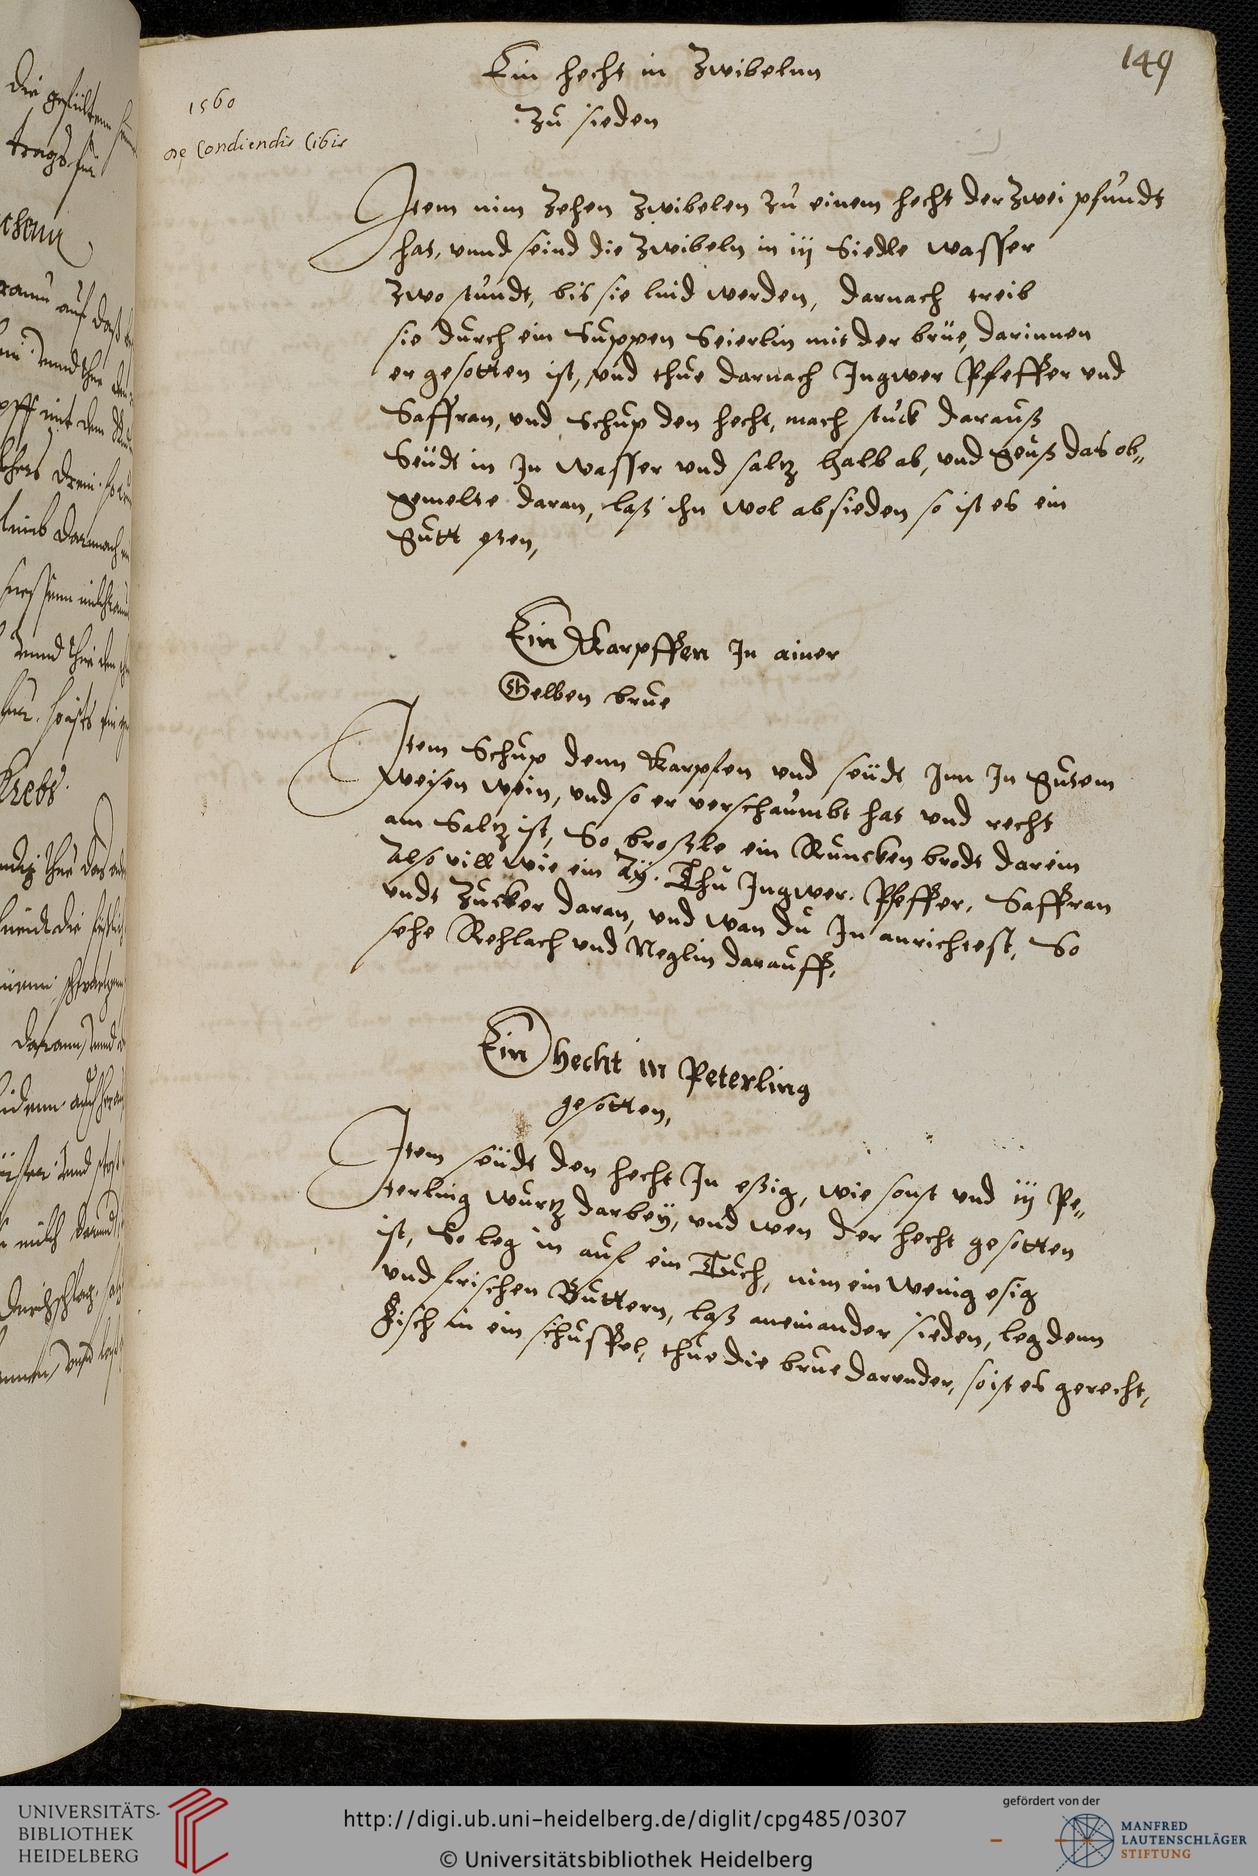 149
Ein hecht in Zwibelnn
Zu sieden
1560
de Condiendis Cibis
Item nim Zehen Zwibelen Zu einem hecht der Zwei pfundt
hat, vnnd seind die Zwibeln in iij Siedle wasser
Zwo stundt, bis sie lind werden, darnach treib
sie durch ein Suppen Seierlin mit der brüe, darinnen
er gesotten ist, vnd thue darnach Ingwer Pfeffer vnd
Saffran, vnd Schup den hecht, mach stuck darauß
Seüdt in In wasser vnd saltz halb ab, vnd geuß das ob„
gemelte daran, laß ihn wol absieden so ist es ein
gutt eßen,
Ein Karpffen In ainer
Gelben brue
Item Schup denn Karpfen vnd seüdt Inn In gutem
weisen wein, vnd so er verschaumbt hat vnd recht
am Saltz ist, So broßle ein Runcken brodt darein
Also vill wie ein Aÿ. Thu Ingwer. Pfeffer. Saffran
vndt Zucker daran, vnd wan du In anrichtest, So
sehe Rehlach vnd Neglin darauff,
Ein hecht in Peterling
gesotten,
Item seüdt den hecht In eßig, wie sonst vnd iij Pe„
terling wurtz darbeÿ, vnd wen der hecht gesotten
ist, So leg in auf ein Tuch, nim ein wenig esig
vnd frischen Buttern, laß aneinander sieden, leg denn
Fisch in ein schussel, thue die brue darunder, so ist es gerecht,
Krebs
UNIVERSITÄTS-
BIBLIOTHEK
HEIDELBERG
http://digi.ub.uni-heidelberg.de/diglit/cpg485/0307
© Universitätsbibliothek Heidelberg
gefördert von der
MANFRED
LAUTENSCHLÄGER
STIFTUNG